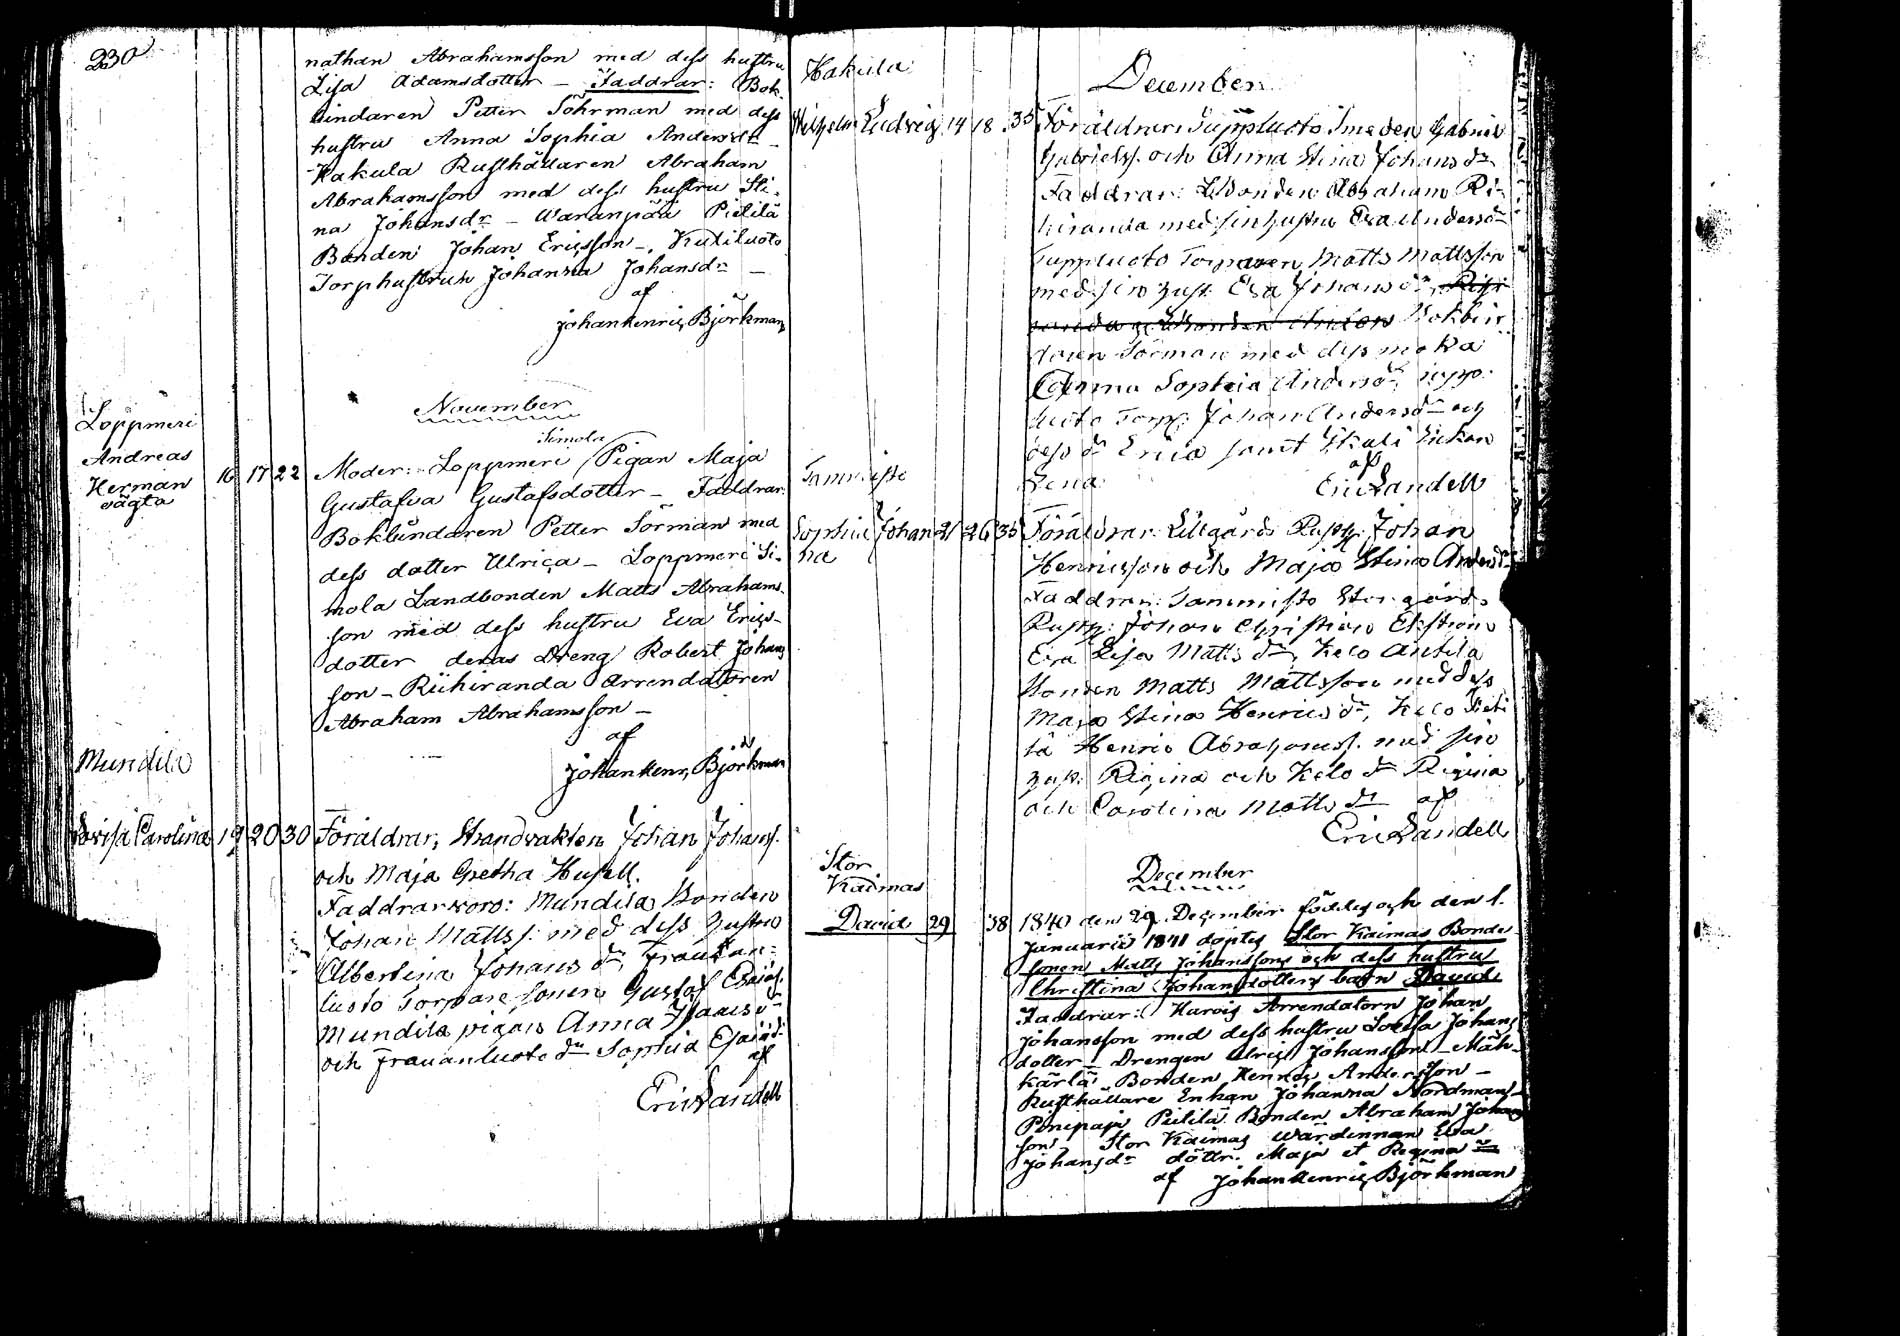 230
nathan Abrahamsson med dess hustru
Lisa Adamsdotter – Faddrar: Bok-
bindaren Petter Törman med dess
hustru Anna Sophia Andersdr –
Hakula Rusthållaren Abraham
Abrahamsson med dess hustru Sti-
na Johansdr – Waranpää Pietilä
Bonden Johan Ericsson –
Torphustrun Johanna Johansdr –
af
Johan Henric Björkman
November
Loppmeri
Andreas
Herman
oägta
16 17 22
Simola
Moder: Loppmeri Pigan Maja
Gustafva Gustafsdotter – Faddrar:
Bokbindaren Petter Törman med
dess dotter Ulrica – Loppmeri Si-
mola Landbonden Matts Abrahams-
son med dess hustru Eva Erics-
dotter deras Dreng Robert Johans
son – Riihiranda Arrendatoren
Abraham Abrahamsson –
af
Johan Henr. Björkman
Mundila
Lovisa Carolina 19 20 30 Föräldrar, Strandvakten Johan Johanss.
och Maja Gretha Husell.
Faddrar voro: Mundila Bonden
Johan Mattss. med dess hustru
Albertina Johans dr,
luoto Torpare sonen Gustaf
Mundila pigan Anna Isaacs dr
och Frauanluoto dr Sophia
af
Eric Landell
Hakula
December
Wilhelm Ludvig 14 18 35 Föräldrar: Suppluoto Smeden Gabriel
Gabrielss. och Anna Stina Johans dr
Faddrar: LBonden Abraham Ri-
hiranda med sin hustru Eva Anders dr
Suppluoto Torparen Matts Mattsson
med sin hust. Eva Johans dr,
Bokbin
daren Törman med dess maka
Anna Sophia Anders dr, Supp-
luoto Torp. Johan Anders och
dess dr Erica samt Enkan
Lena
af
Eric Landell
Tammisto
Sophia Johan
na
21 26 35
Föräldrar: Lillgårds Rusth. Johan
Henricsson och Maja Stina Anders dr
Faddrar: Tammisto Storgårds
Rusth: Johan Christian Ekström
Eva Lisa Matts dr, Kelo Antila
Bonden Matts Mattsson med dess
Maja Stina Henrics dr, Kelo Pieti
lä Henric Abrahamss. med sin
hust. Regina och Kelo dr Regina
och Carolina Matts dr af
Eric Landell
December
Stor
Kaimas
David 29 38
1840 den 29 December föddes och den 1.
Januarii 1841 döptes Stor Kaimas Bonde-
sonen Matts Johanssons och dess hustru
Christina Johansdotters barn David
Faddrar: Arrendatorn Johan
Johansson med dess hustru Lovisa Johans
dotter – Drengen Ulric Johansson – Mäh-
kärlä Bonden Henric Andersson –
Rusthållare Enkan Johanna Nordman –
Pietilä Bonden Abraham Johans
son – Stor Kaimas Wärdinnan Eva
Johansdr döttr. Maja et Regina
af Johan Henric Björkman